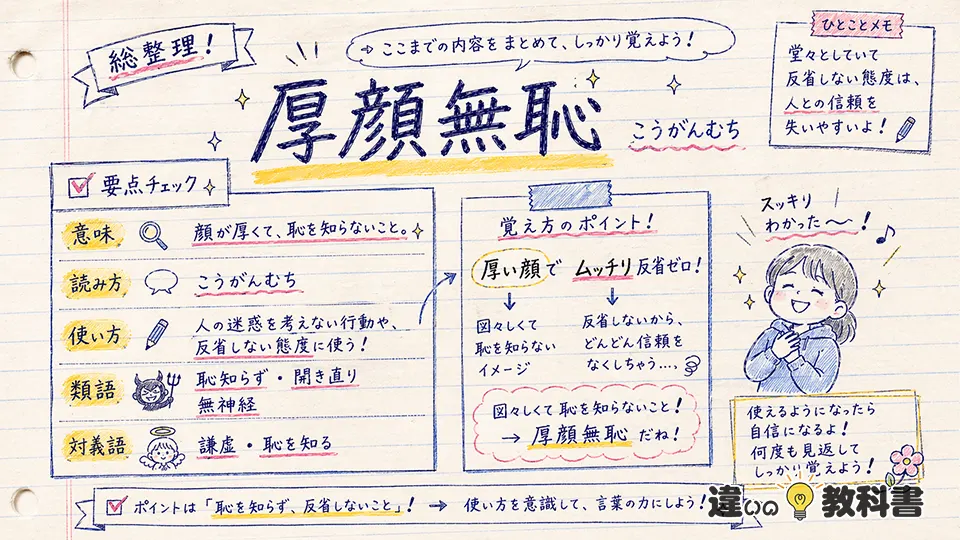 総整理！
⇒ ここまでの内容をまとめて、しっかり覚えよう！
厚顔無恥
こうがんむち
ひとことメモ
堂々としていて
反省しない態度は、
人との信頼を
失いやすいよ！
要点チェック
意味
顔が厚くて、恥を知らないこと。
読み方
こうがんむち
使い方
人の迷惑を考えない行動や、
反省しない態度に使う！
類語
恥知らず・開き直り
無神経
対義語
謙虚・恥を知る
覚え方のポイント！
厚い顔で ムッチリ 反省ゼロ！
↓ ↓
図々しくて
恥を知らない
イメージ
反省しないから、
どんどん信頼を
なくしちゃう…。
図々しくて 恥を知らないこと！
→ 厚顔無恥 だね！
スッキリ
わかった〜〜！
使えるようになったら
自信になるよ！
何度も見返して
しっかり覚えよう！
ポイントは「恥を知らず、反省しないこと」！ → 使い方を意識して、言葉の力にしよう！
違いの教科書